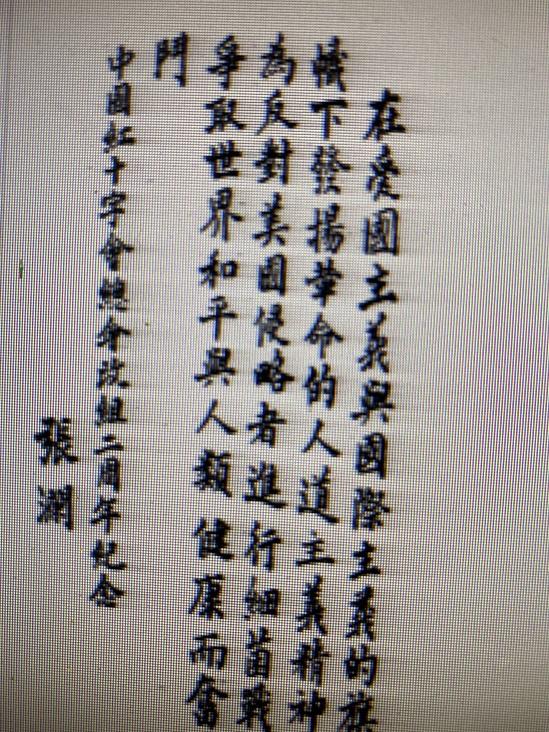 在愛國主義與國際主義的旗
幟下發揚革命的人道主義精神
為反對美國侵略者進行細菌戰
爭取世界和平與人類健康而奮
鬥
中國紅十字會總會改組二周年紀念
張瀾